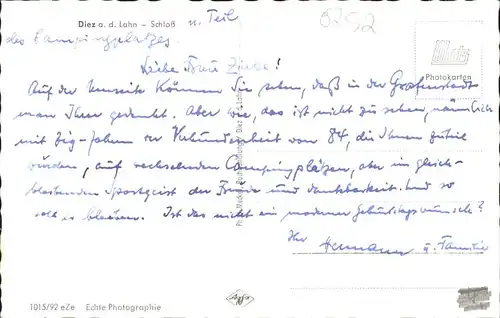 Diez a. d. Lahn – Schloß u. Teil
des Campingplatzes.
6252
Liebe Frau Zieke!
Photokarten
Auf der Umseite können Sie sehen, daß in der Grafenstadt
man Ihrer gedenkt. Aber wie, das ist nicht zu sehen, nämlich
mit Zig-Jahren der Verbundenheit von 84, die Ihnen zuteil
wurden, auf wechselnden Campingplätzen, aber im gleich-
bleibenden Sportgeist der Freude und Dankbarkeit. Und so
soll es bleiben. Ist das nicht ein moderner Geburtstagswunsch?
Ihr Hermann u. Familie
Agfa
1015/92 eZe Echte Photographie